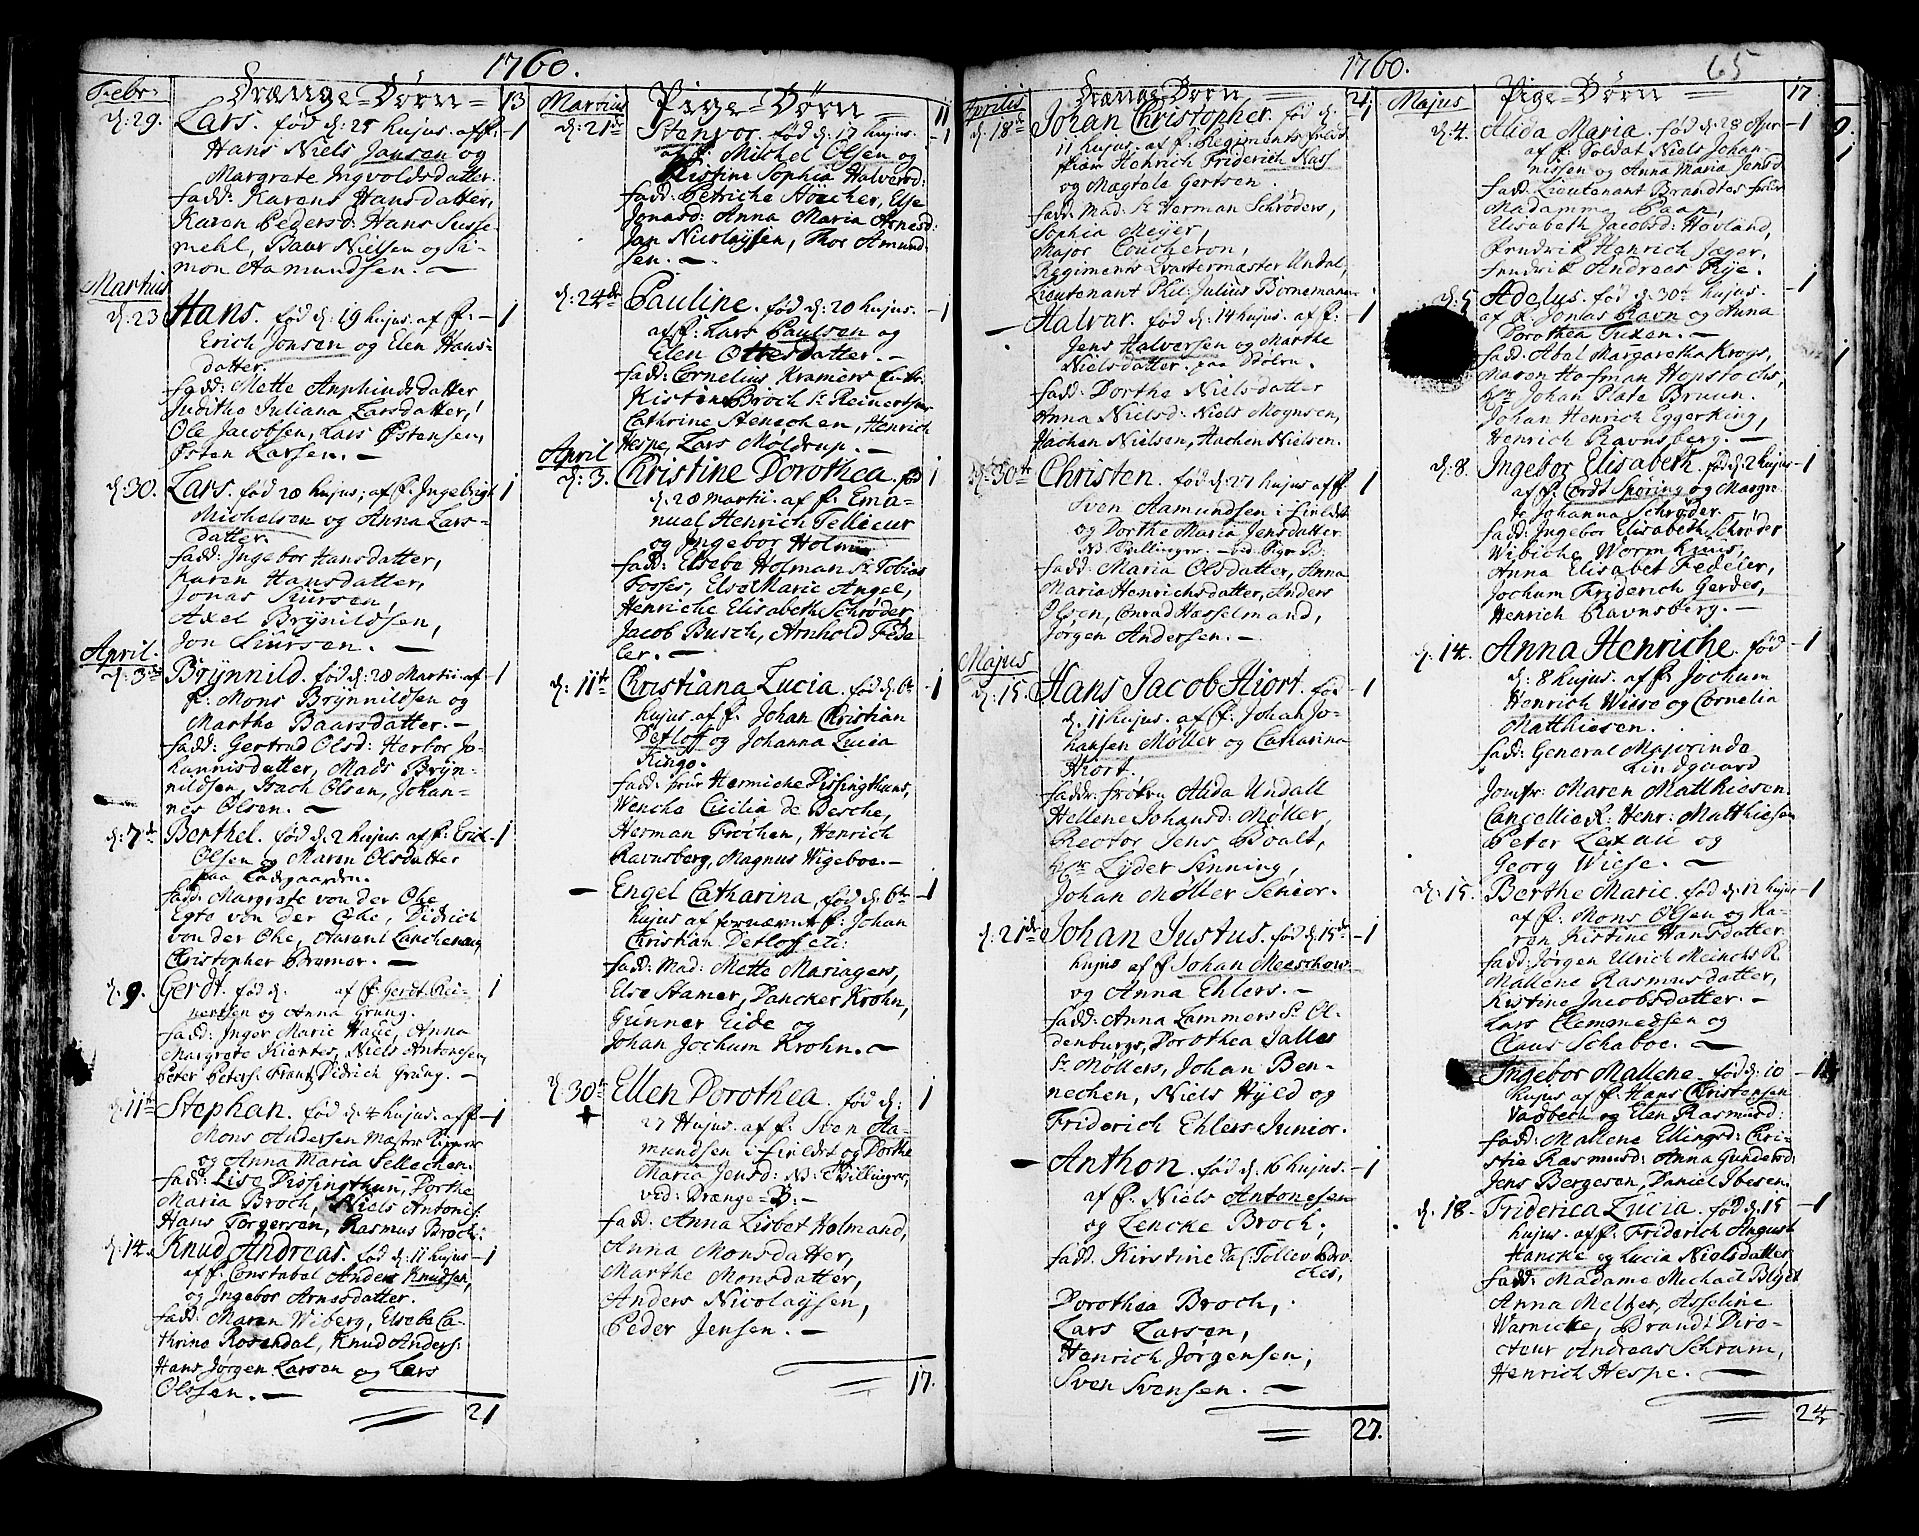 1760.
Febr:
Drænge-Börn
13
d: 29.
Lars. fød d: 25 hujus. af f:
1
Hans Niels Jansen og
Margrete Ingvoldsdatter.
fadd: Karens Hansdatter,
Karen Pedersd: Hans Susse
mehl, Baar Nielsen og Si-
mon Aamundsen. —
Martius
d: 23
Hans. fød d: 19 hujus. af f: —
1
Erich Jonsen og Elen Hans-
datter.
fadd: Mette Anphindsdatter
Juditha Juliana Larsdatter,
Ole Jacobsen, Lars Østensen,
Østen Larsen. —
d: 30.
Lars. fød 28 hujus; af f: Ingebrigt
1
Michelsen og Anna Lars-
datter.
fadd: Ingebor Hansdatter,
Karen Hansdatter,
Jonas Siursen,
Axel Brynildsen,
Jon Siursen. —
April.
d: 3de
Brÿnnild. fød d: 28 Martii. af
1
f: Mons Brÿnnildsen og
Marthe Baarsdatter. —
fadd: Gertrud Olsd: Herbor Jo-
hannisdatter, Mads Brÿn-
nildsen, Isach Olsen, Johan-
nes Olsen. —
d: 7de
Berthel. fød d: 2 hujus. af f: Erich
1
Olsen og Maren Olsdatter
paa Ladegaarden.
fadd: Margrete von der Ohe
Egte von der Ohe, Didrich
von der Ohe, Aarant
Christopher Bremer. —
d: 9.
Gerdt. fød d: af f: Gerdt Rei-
1
nertsen og Anna Grung.
fadd: Inger Marie Hage, Anna
Margrete Kiertes, Niels Antonesen,
Peter Peters: Frantz Didrich Grung. —
d: 11te
Stephan. fød d: 4 hujus. af f:
1
Mons Andersen Mester
og Anna Maria Sellechen.
fadd: Lise Dissingthun, Dorthe
Maria Broch, Niels Antonef:
Hans Torgersen, Rasmus Broch:
d: 14.
Knud Andreas. fød d: 11 hujus
1
af f: Constabel Anders Knudsen,
og Ingebor Arnesdatter.
fadd: Maren Wiberg, Elsebe Ca-
thrine Rosendal, Knud Anders:
Hans Jørgen Larsen og Lars
Olssen. —
21
Martius
Pige-Börn
11
d: 21de
Stenvor. fød d: 17 hujus.
1
af f: Michel Olsen og
Kistine Sophia Halversd:
fadd: Petriche Höecher, Else
Jonasd: Anna Maria Arnesd:
Jan Nicolaÿsen, Thor Amund-
sen. —
d: 24de
Pauline. fød d: 20 hujus.
1
af f: Lars Paulsen og
Elen Ottesdatter. —
fadd: Cornelius Kramers Enke.
Kirsten Broch Sr. Reinertsens
Cathrine Stenschen, Henrich
Hespe, Lars Moldrup. —
April
d: 3.
Christine Dorothea. fød
1
d: 28 Martii. af f: Ema-
nuel Henrich Tellecur
og Ingebor Holm
fadd: Elsebe Hofman Sr. Tobias
Fosses, Else Marie Angel,
Henriche Elisabeth Schrøder
Jacob Busch, Arnhold Fede-
ler. —
d: 11te
Christiana Lucia. fød d: 6te
1
hujus. af f. Johan Christian
Detloff og Johanna Lucia
Ringo.
fadd: frue Hermiche Dissingthuns,
Wenche Cicilia de Besche,
Herman Frochen, Henrich
Ravnsberg, Magnus Wigeboe. —
—
Engel Catharina, fød d: 6te
1
hujus af fornævnte f: Johan
Christian Detloff etc:
fadd: Mad: Mette Mariagers,
Else Stamer, Dancker Krohn,
Gunner Eide og
Johan Jochum Krohn. —
d: 30te
Ellen Dorothea. fød d:
1
27 Hujus. af f: Sven Aa-
mundsen i Eirldet og Dorthe
Maria Jensd: NB: Tvillinger,
ved: Drænge-B: —
fadd: Anna Lisbet Holmand,
Anna Monsdatter,
Marthe Monsdatter,
Anders Nicolaÿsen,
Peder Jensen. —
17.
1760.
65
Aprilis
Drænge Börn
21
d: 18de
Johan Christopher. fød d:
1
11 hujus. af f: Regiments
Henrich Friderich Nass
og Magtale Gertsen.
fadd: Mad: Sr. Herman Schrøders,
Sophia Meÿer,
Major Coucheron,
Regiments Qvartermæster Undal,
Lieutenant Phil: Julius Bornemann
—
Halvar. fød d: 14 hujus. af f:
1
Jens Halversen og Marthe
Nielsdatter. paa Dølen.
fadd: Dorthe Nielsdatter
Anna Nielsd: Niels Mognsen,
Hachen Nielsen, Aachen Nielsen.
d: 30te
Christen. fød d: 27 hujus af f:
1
Sven Aamundsen i Eirldet
og Dorthe Maria Jensdatter
NB. Tvillinger. — ved: Pige B:
fadd: Maria Olsdatter, Anna
Maria Henrichsdatter, Anders
Olsen, Conrad Hasselmand,
Jørgen Andersen. —
Majus
d: 15.
Hans Jacob Hiort. fød
1
d. 11 hujus. af f: Johan Jo-
hansen Møller og Catharina
Hiort.
fadd: frøken Alida Undall
Hellene Johansd: Møller,
Rector Jens Boalt,
Hr. Lÿder Sinning,
Johan Møller Senior.
d: 21de
Johan Justus. fød d: 15de
1
hujus af f: Johan Meeschow
og Anna Ehlers. —
fadd: Anna Lammers Sr. Ol-
denburgs, Dorothea Salles
Sr. Møllers, Johan Ben-
nechen, Niels Hÿld og
Friderich Ehlers Junior.
—
Anthon, fød d: 16 hujus.
1
af f: Niels Antonesen
og Lencke Broch;
fadd: Kirstine Tolles Bro-
ches,
Dorothea Broch,
Lars Larsen,
Henrich Jørgensen,
Sven Svensen. —
27.
Majus
Pige-Börn
17
d: 4.
Alida Maria. fød d: 28 Apr
1
af f: Soldat Niels Johan-
nissen og Anna Maria Jensd
fadd: Lieutenant Brandtes frue
Madamme Paap,
Elisabeth Jacobsd: Hovland,
Fendrik Henrich Jager,
Fendrik Andreas Rÿe.
d: 5
Adelus. fød d: 30te hujus.
1
af f: Jonas Ravn og Anna
Dorothea Tuxen.
fadd: Abel Margaretha Krogs,
Maren Hofman Hopstochs,
Hr. Johan Plate Bruun.
Johan Henrich Eggerking,
Henrich Ravnsberg. —
d: 8.
Ingebor Elisabeth. fød d: 2 hujus
1
af f: Cordt Spøring og Margre
te Johanna Schrøder.
fadd: Ingebor Elisabeth Schrøder
Wibiche Wormhuus,
Anna Elisabet Fedeler,
Jochum Friderich Gerdes,
Henrich Ravnsberg. —
d. 14.
Anna Henriche. fød
1
d: 8 hujus. af f: Jochum
Henrich Wiese og Cornelia
Matthiesen.
fadd: General Majorinde
Lindgaard
Jomfr: Maren Matthiesen.
CancellieR: Henr: Matthiesen
Peter Lexau og
Georg Wiese. —
d: 15.
Berthe Marie. fød d: 12 hujus
1
af f: Mons Olsen og Ka-
ren Kistine Hansdatter.
fadd: Jørgen Ulrich Meinches K
Mallene Rasmusdatter,
Kistine Jacobsdatter. —
Lars Clemmedsen og
Claus Schaboe. —
Ingebor Mallene. fød d: 10
1
hujus. af f: Hans Christensen
Vadbech og Elen Rasmusd:
fadd: Mallene Ellingsd: Chri-
stie Rasmusd: Anna Gundersd:
Jens Bergesen, Daniel Ibesen.
d: 18.
Friderica Lucia. fød d: 15
1
hujus. af f: Friderich August
Hancke og Lucia Nielsdatter
fadd: Madame Michael Blÿdt
Anna Meltzer, Asseline
Warnicke, Brandt Dire-
cteur Andreas Schram,
Henrich Hespe. —
24